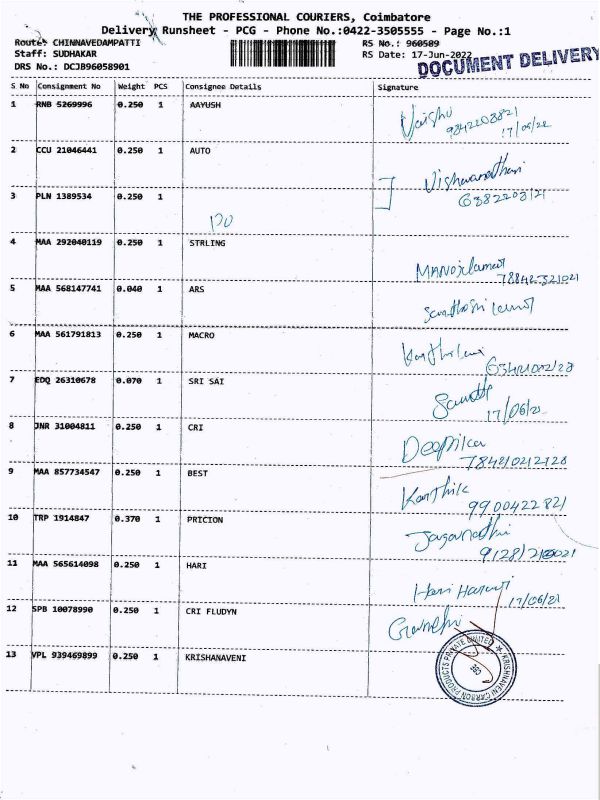 THE PROFESSIONAL COURIERS, Coimbatore
Delivery Runsheet - PCG - Phone No.:0422-3505555 - Page No.:1
Route: CHINNAVEDAMPATTI RS No.: 960509
Staff: SUDHAKAR RS Date: 17-Jun-2022
DRS No.: DCJB96058901 DOCUMENT DELIVERY
S No Consignment No Weight PCS Consignee Details Signature
1 RNB 5269996 0.250 1 AAYUSH
17/06/22
2 CCU 21046441 0.250 1 AUTO
3 PLN 1389534 0.250 1
4 MAA 292040119 0.250 1 STRLING
5 MAA 568147741 0.040 1 ARS
6 MAA 561791813 0.250 1 MACRO
7 EDQ 26310678 0.070 1 SRI SAI
17/06/2
8 JNR 31004811 0.250 1 CRI
Deepika
9 MAA 857734547 0.250 1 BEST
Karthik
9900422821
10 TRP 1914847 0.370 1 PRICION
11 MAA 565614098 0.250 1 HARI
17/06/21
12 SPB 10078990 0.250 1 CRI FLUDYN
13 VPL 939469899 0.250 1 KRISHANAVENI
KRISHNAVENI CARBON PRODUCTS PRIVATE LIMITED